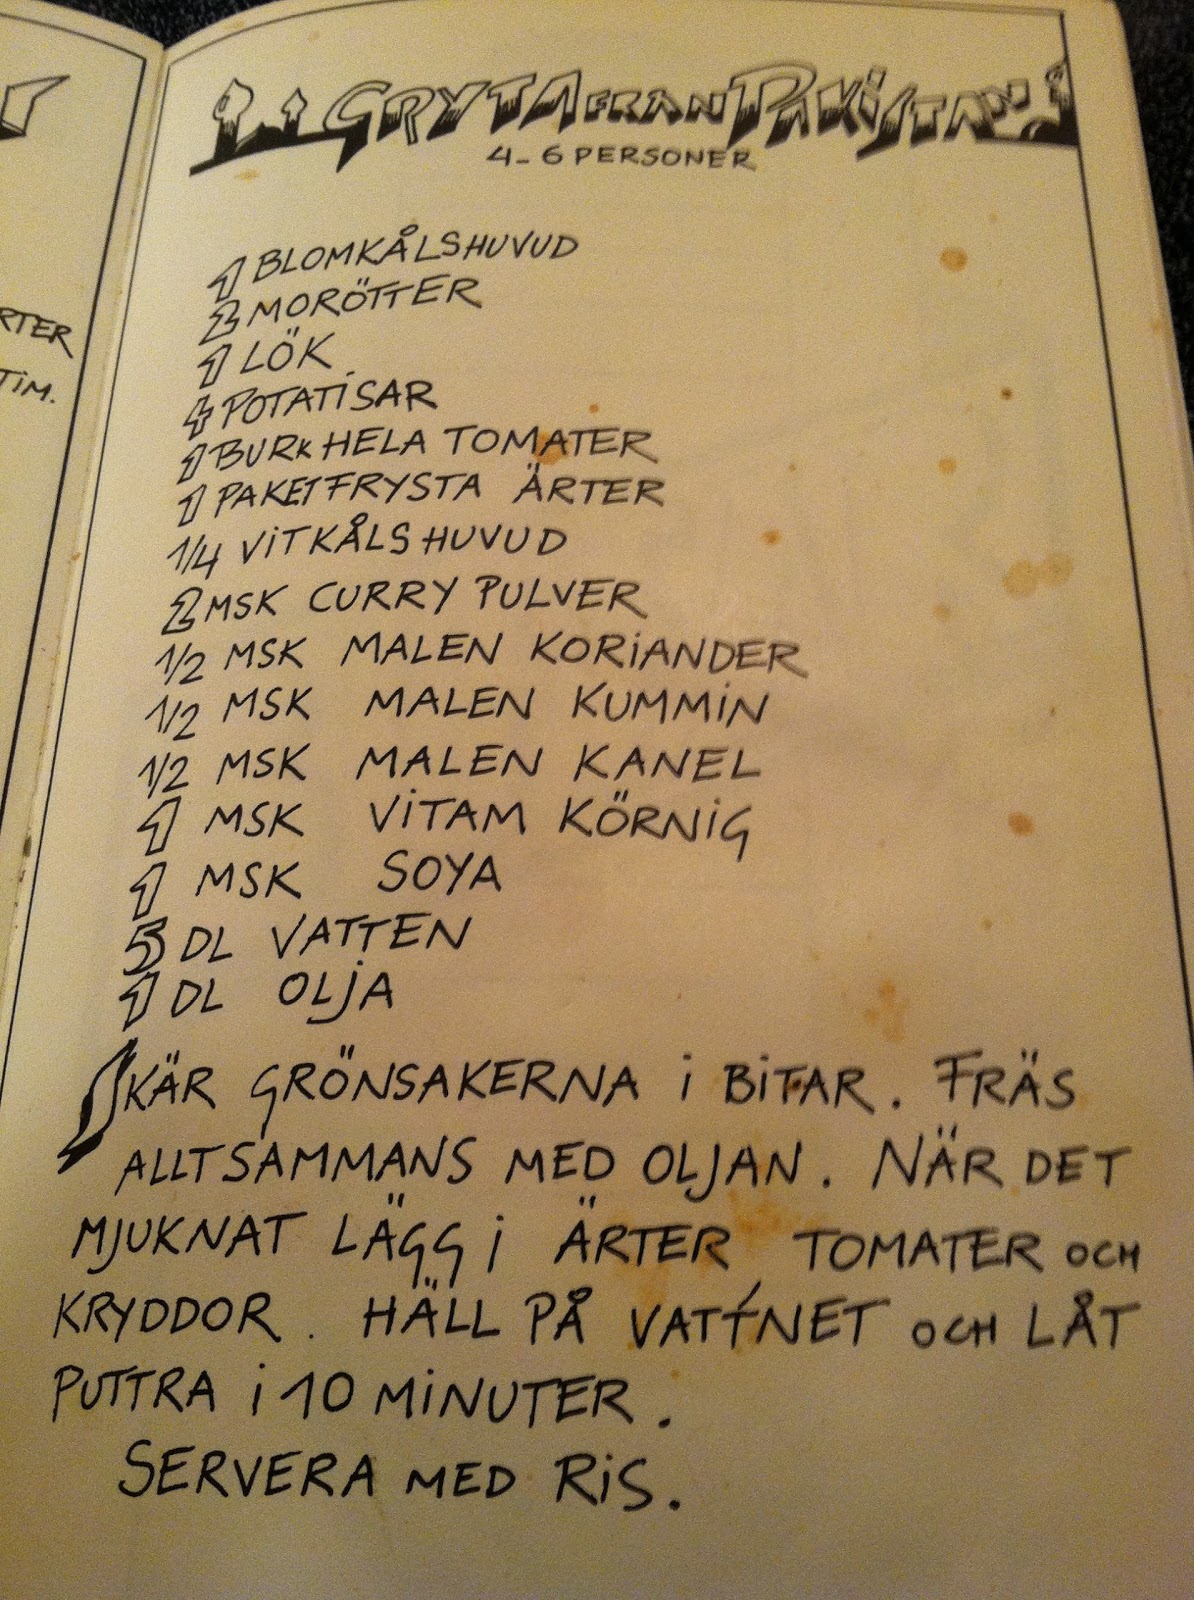 RTER
TIM.
GRYTA FRÅN PAKISTAN
4-6 PERSONER
1 BLOMKÅLSHUVUD
2 MORÖTTER
1 LÖK
4 POTATISAR
1 BURK HELA TOMATER
1 PAKET FRYSTA ÄRTER
1/4 VITKÅLSHUVUD
2 MSK CURRY PULVER
1/2 MSK MALEN KORIANDER
1/2 MSK MALEN KUMMIN
1/2 MSK MALEN KANEL
1 MSK VITAM KÖRNIG
1 MSK SOYA
5 DL VATTEN
1 DL OLJA
SKÄR GRÖNSAKERNA I BITAR. FRÄS
ALLTSAMMANS MED OLJAN. NÄR DET
MJUKNAT LÄGG I ÄRTER TOMATER OCH
KRYDDOR. HÄLL PÅ VATTNET OCH LÅT
PUTTRA I 10 MINUTER.
SERVERA MED RIS.